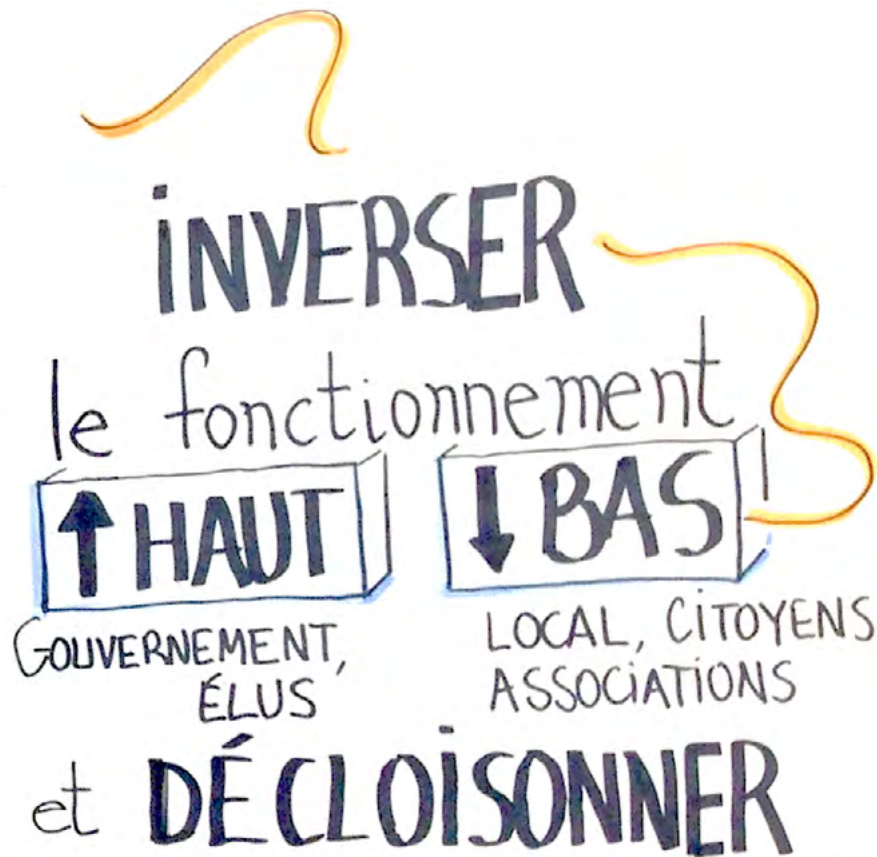 iNVERSER
le fonctionnement
↑ HAUT ↓ BAS
GOUVERNEMENT, ÉLUS
LOCAL, CiTOYENS ASSOCiATiONS
et DÉCLOiSONNER